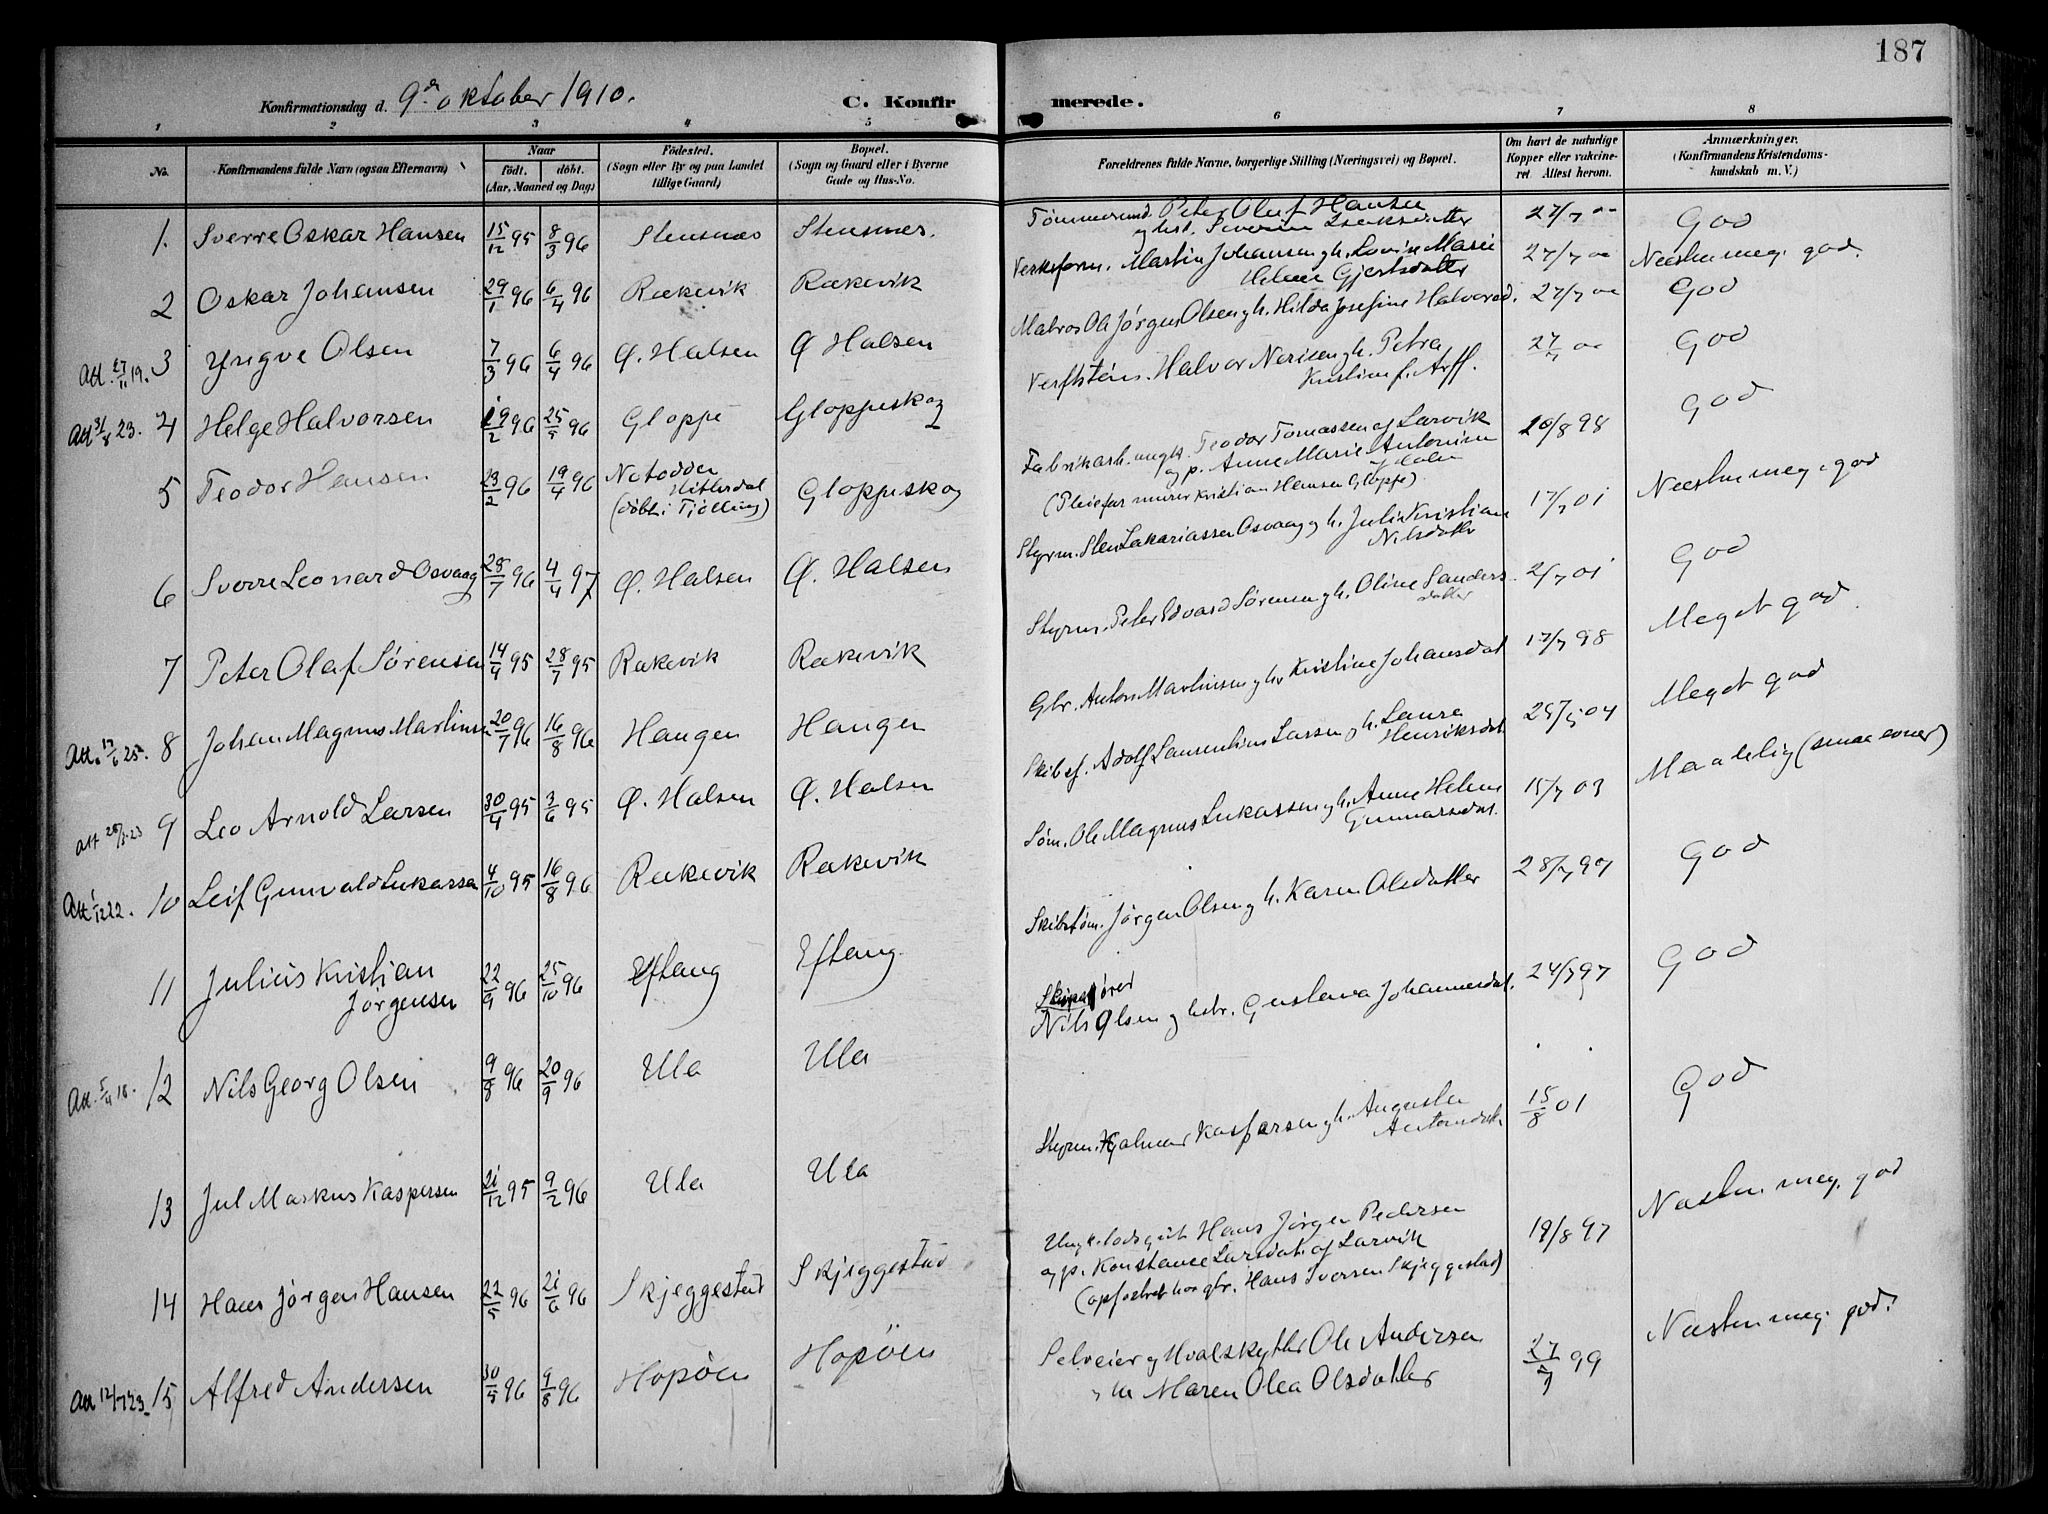 187
Konfirmationsdag d. 9de oktober 1910. C. Konfirmerede.
1 2 3 4 5 6 7 8
No. Konfirmandens fulde Navn (ogsaa Efternavn) Naar født. døbt. (Aar, Maaned og Dag) Fødested. (Sogn eller By og paa Landet tillige Gaard) Bopæl. (Sogn og Gaard eller i Byerne Gade og Hus-No. Forældrenes fulde Navne, borgerlige Stilling (Næringsvei) og Bopæl. Om havt de naturlige Kopper eller vakcineret Attest herom. Anmærkninger. (Konfirmandens Kristendomskundskab m. V.)
1. Sverre Oskar Hansen 15/12 95 8/3 96 Stensnæs Stensnæs. Tømmermd. Peter Oluf Hansen og hst. Severine Isaksdatter 27/7 00 God
2 Oskar Johansen 29/1 96 6/4 96 Rækevik Rækevik Verksform. Martin Johansen og h. Lovise Marie Helene Gjertsdatter 27/7 00 Næsten meg. god.
Att. 27/11 19. 3 Yngve Olsen 7/3 96 6/4 96 Ø. Halsen Ø Halsen Matros Ole Jørgen Olsen og h. Hilda Josefine Halvorsd. 27/7 00 God
Att 31/8 23. 4 Helge Halvorsen 19/2 96 25/5 96 Gloppe Gloppeskog Verftstøm. Halvor Nerisen og h. Petra Kristine f. Arff. 27/7 00 God
5 Teodor Hansen 23/2 96 19/4 96 Notodden Hitterdal (døbt i Tjølling) Gloppeskog Fabrikarb. ungk. Teodor Tomassen af Larvik og p. Anne Marie Antonsen af Halsen (Pleiefar murer Kristian Hansen Gloppe) 20/8 98 God
6 Sverre Leonard Osvaag 28/7 96 4/4 97 Ø. Halsen Ø. Halsen Styrm. Sten Zakariassen Osvaag og h. Julie Kristiane Nilsdatter 17/7 01 Næsten meg. god
7 Peter Olaf Sørensen 14/4 95 28/7 95 Rækevik Rækevik Styrm. Peter Edvard Sørensen og h. Oline Sandersdatter 2/7 01 God
Att. 17/6 25. 8 Johan Magnus Martinsen 20/7 96 16/8 96 Haugen Haugen Gbr. Anton Martinsen og h. Kristine Johansdat 17/7 98 Meget god.
Att 28/3-23 9 Leo Arnold Larsen 30/4 95 3/6 95 Ø. Halsen Ø. Halsen Skibsf. Adolf Laurentius Larsen og h. Laura Henriksdat 25/5 04 Meget god
Att 1/12 22. 10 Leif Gunvald Lukassen 4/10 95 16/8 96 Rækevik Rækevik Søm. Ole Magnus Lukassen og h. Anne Helene Gunnarsdat. 15/7 03 Maadelig (smaa evner)
11 Julius Kristian Jørgensen 22/9 96 25/10 96 Eftang Eftang Skibstøm. Jørgen Olsen og h. Karen Olsdatter 28/7 97 God
Att. 5/4 18. 12 Nils Georg Olsen 9/8 96 20/9 96 Ula Ula Nils Olsen og hstr. Gustava Johannesdat. 24/7 97 God
13 Jul Markus Kaspersen 21/12 95 9/2 96 Ula Ula Styrm. Hjalmar Kaspersen og h. Augusta Antonsdatt. 15/8 01 God
14 Hans Jørgen Hansen 22/5 96 21/6 96 Skjeggestad Skjeggestad Ungk. lodsgut Hans Jørgen Pedersen og p. Konstance Larsdat. af Larvik (opfostret hos gbr. Hans Iversen Skjeggestad) 19/8 97 Næsten meg. god
Att 12/7 23 15 Alfred Andersen 30/5 96 9/8 96 Hopøen Hopøen Selveier og Hvalskytter Ole Andersen Maren Olea Olsdatter 27/7 99 Næsten meg. god.